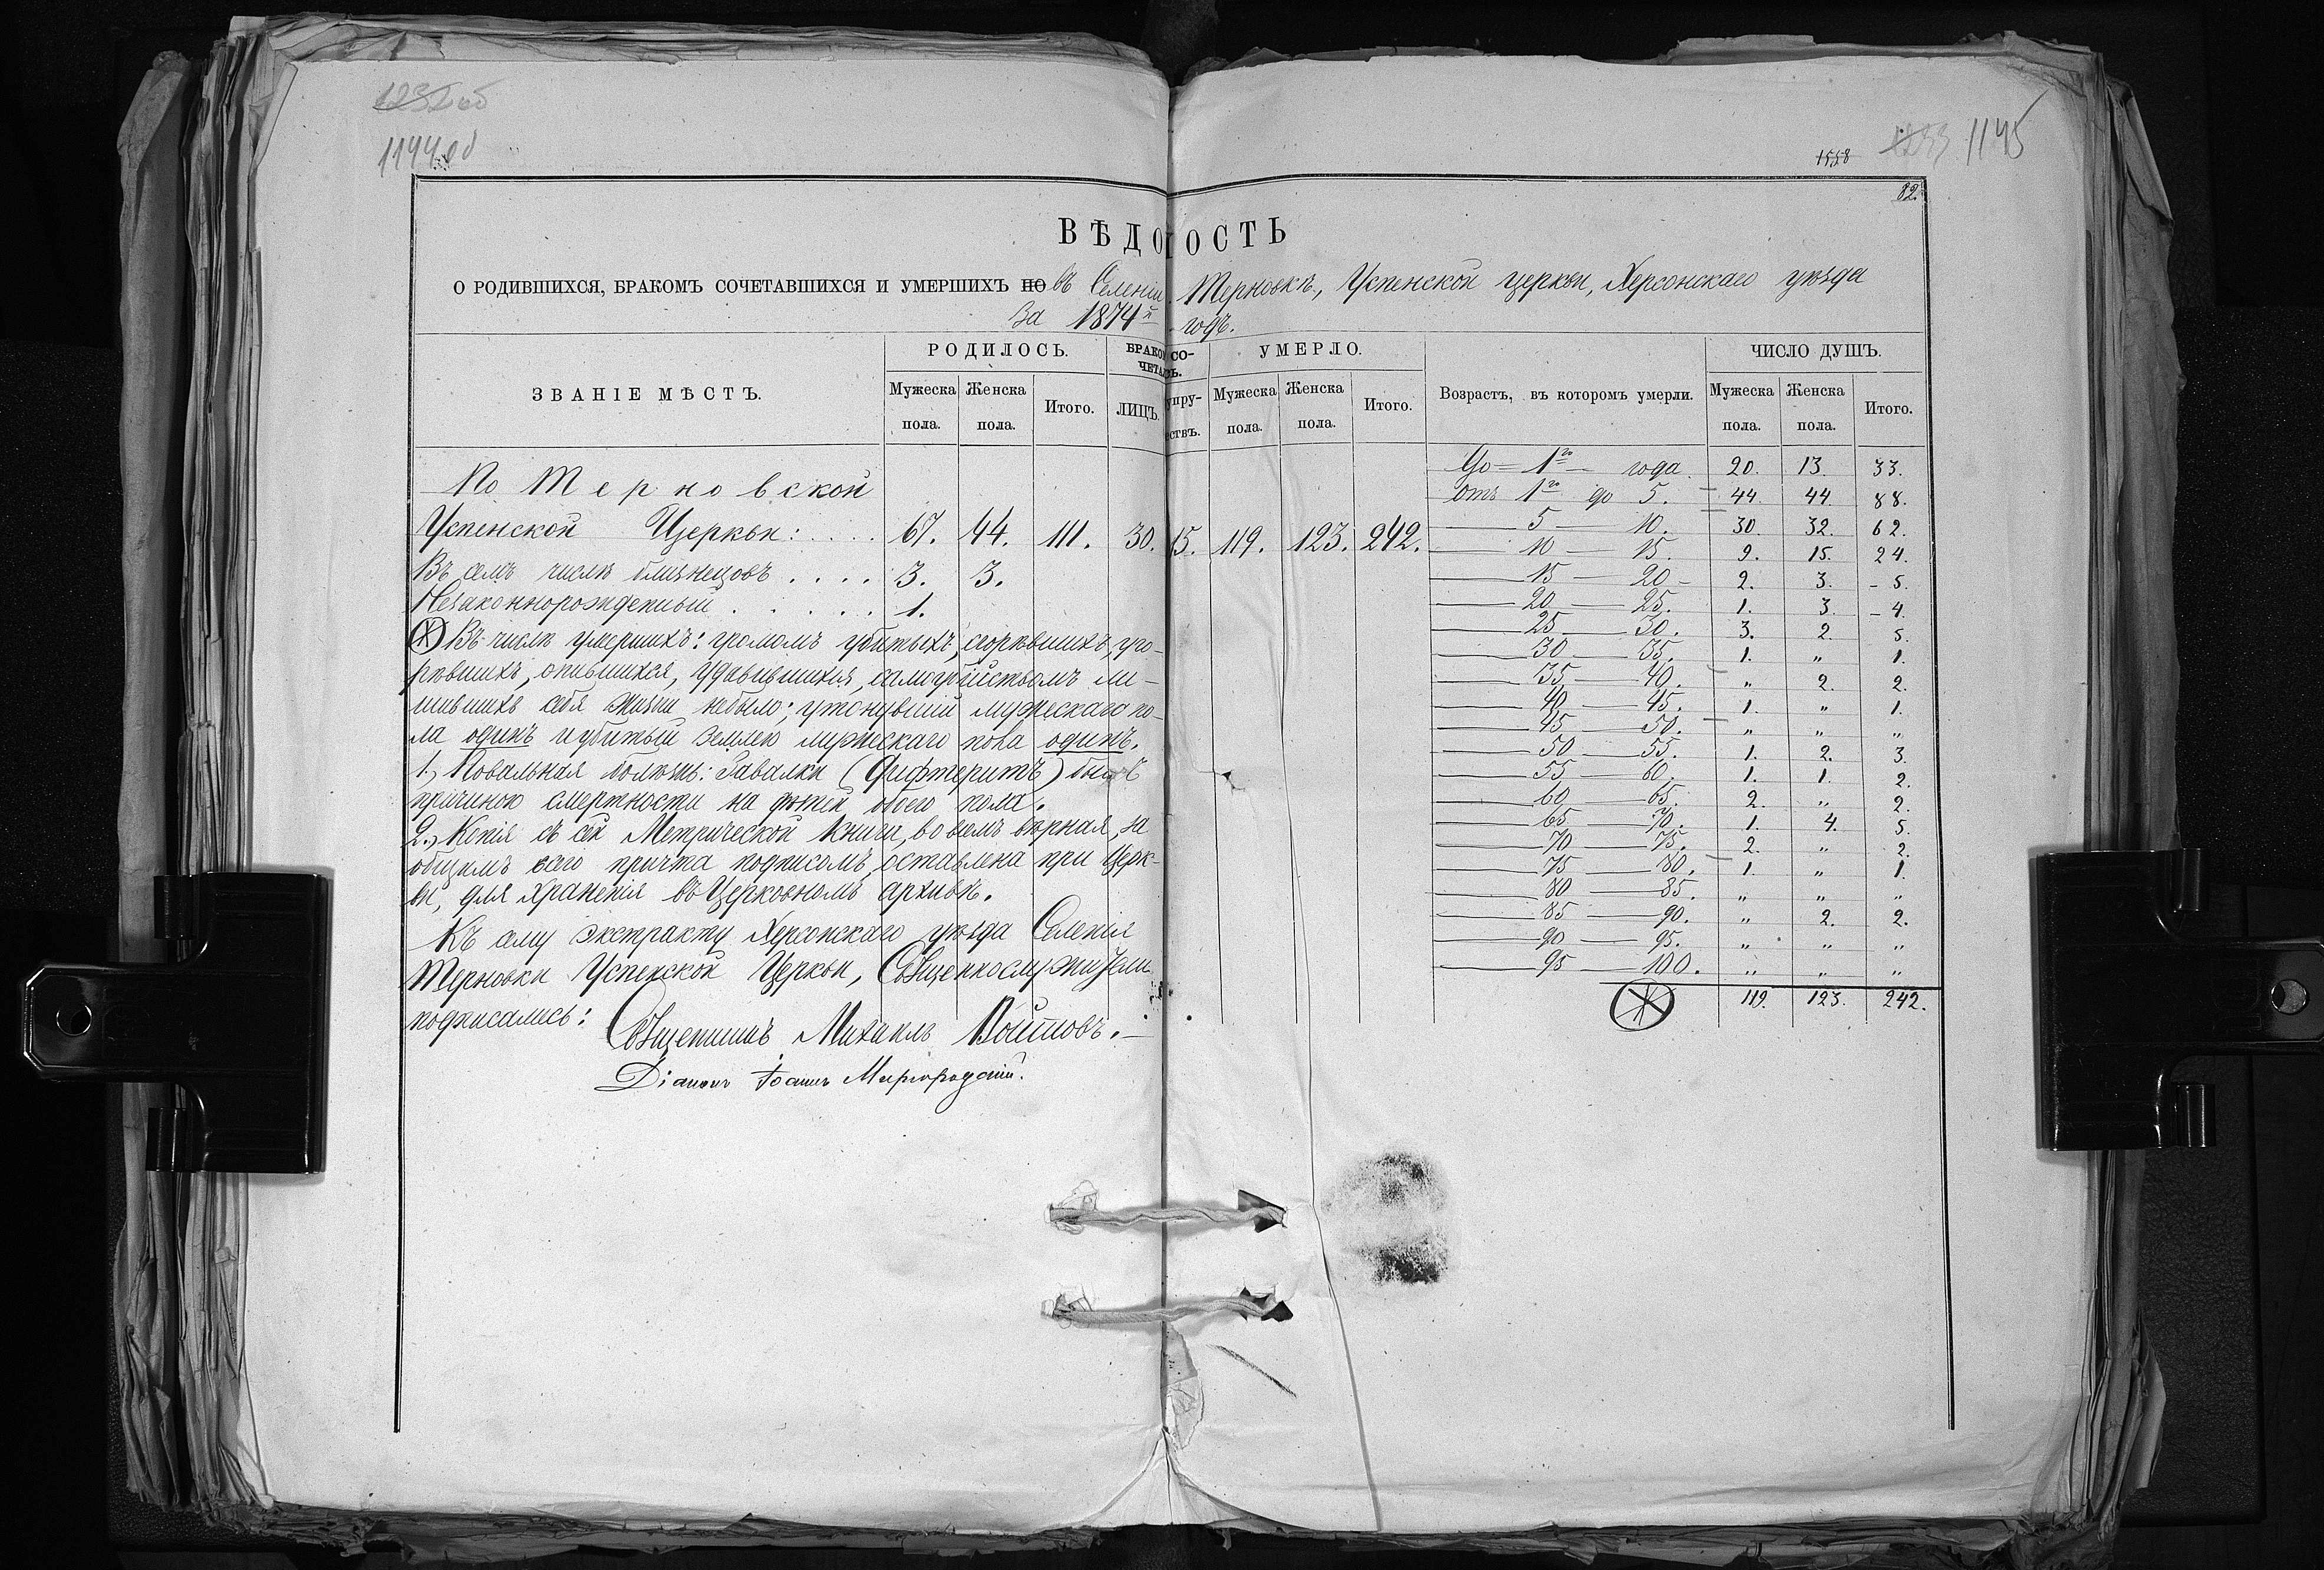 1144 об
1558
1145
82.
ВѢДОМОСТЬ
О РОДИВШИХСЯ, БРАКОМЪ СОЧЕТАВШИХСЯ И УМЕРШИХЪ ПО въ Селеніи Терновкѣ, Успенской церкви, Херсонскаго уѣзда
За 1874й годъ.
ЗВАНІЕ МѢСТЪ.
РОДИЛОСЬ.
Мужеска пола.
Женска пола.
Итого.
ЛИЦЪ.
УМЕРЛО.
Мужеска пола.
Женска пола.
Итого.
Возрастъ, въ которомъ умерли.
ЧИСЛО ДУШЪ.
Мужеска пола.
Женска пола.
Итого.
По Терновской
Успенской Церкви: 67. 44. 111. 30. 15. 119. 123. 242.
Въ семъ числѣ близнецовъ . . . . 3. 3.
Незаконнорожденный . . . . . 1.
Въ числѣ умершихъ: громомъ убитыхъ, сгорѣвшихъ, уго-
рѣвшихъ, опившихся, удавившихся, самоубійствомъ ли-
шившихъ себя жизни небыло; утонувшій мужескаго по-
ла одинъ и убитый землею мужескаго пола одинъ.
1., Повальная болѣзнь: Гавалки (Дифтеритъ) былъ
причиною смертности на дѣтей обоего пола.
2., Копія съ сей Метрической книги, во всемъ вѣрная, за
общимъ всего причта подписомъ, оставлена при Церк-
ви, для храненія въ Церковномъ архивѣ.
Къ сему экстракту Херсонскаго уѣзда Селенія
Терновки Успенской Церкви, Священнослужители
подписались:
Священникъ Михаилъ Войтовъ.
Діаконъ Іоаннъ Миргородскій.
До 1го года 20. 13. 33.
отъ 1го до 5. 44. 44. 88.
5 — 10. 30. 32. 62.
10 — 15. 9. 15. 24.
15 — 20 2. 3. 5.
20 — 25. 1. 3. 4.
25 — 30. 3. 2. 5.
30 — 35. 1. „ 1.
35 — 40. „ 2. 2.
40 — 45. 1. „ 1.
45 — 50. „ „ „
50 — 55. 1. 2. 3.
55 — 60. 1. 1. 2.
60 — 65. 2. „ 2.
65 — 70. 1. 4. 5.
70 — 75. 2. „ 2.
75 — 80. 1. „ 1.
80 — 85. „ „ „
85 — 90. „ 2. 2.
90 — 95. „ „ „
95 — 100. „ „ „
119. 123. 242.